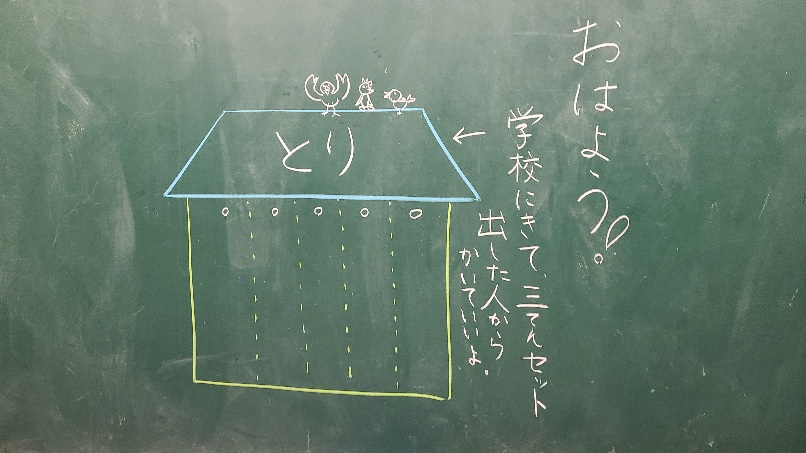 おはよう!
学校にきて、三てんセット
出した人から
かいていいよ。
←
とり